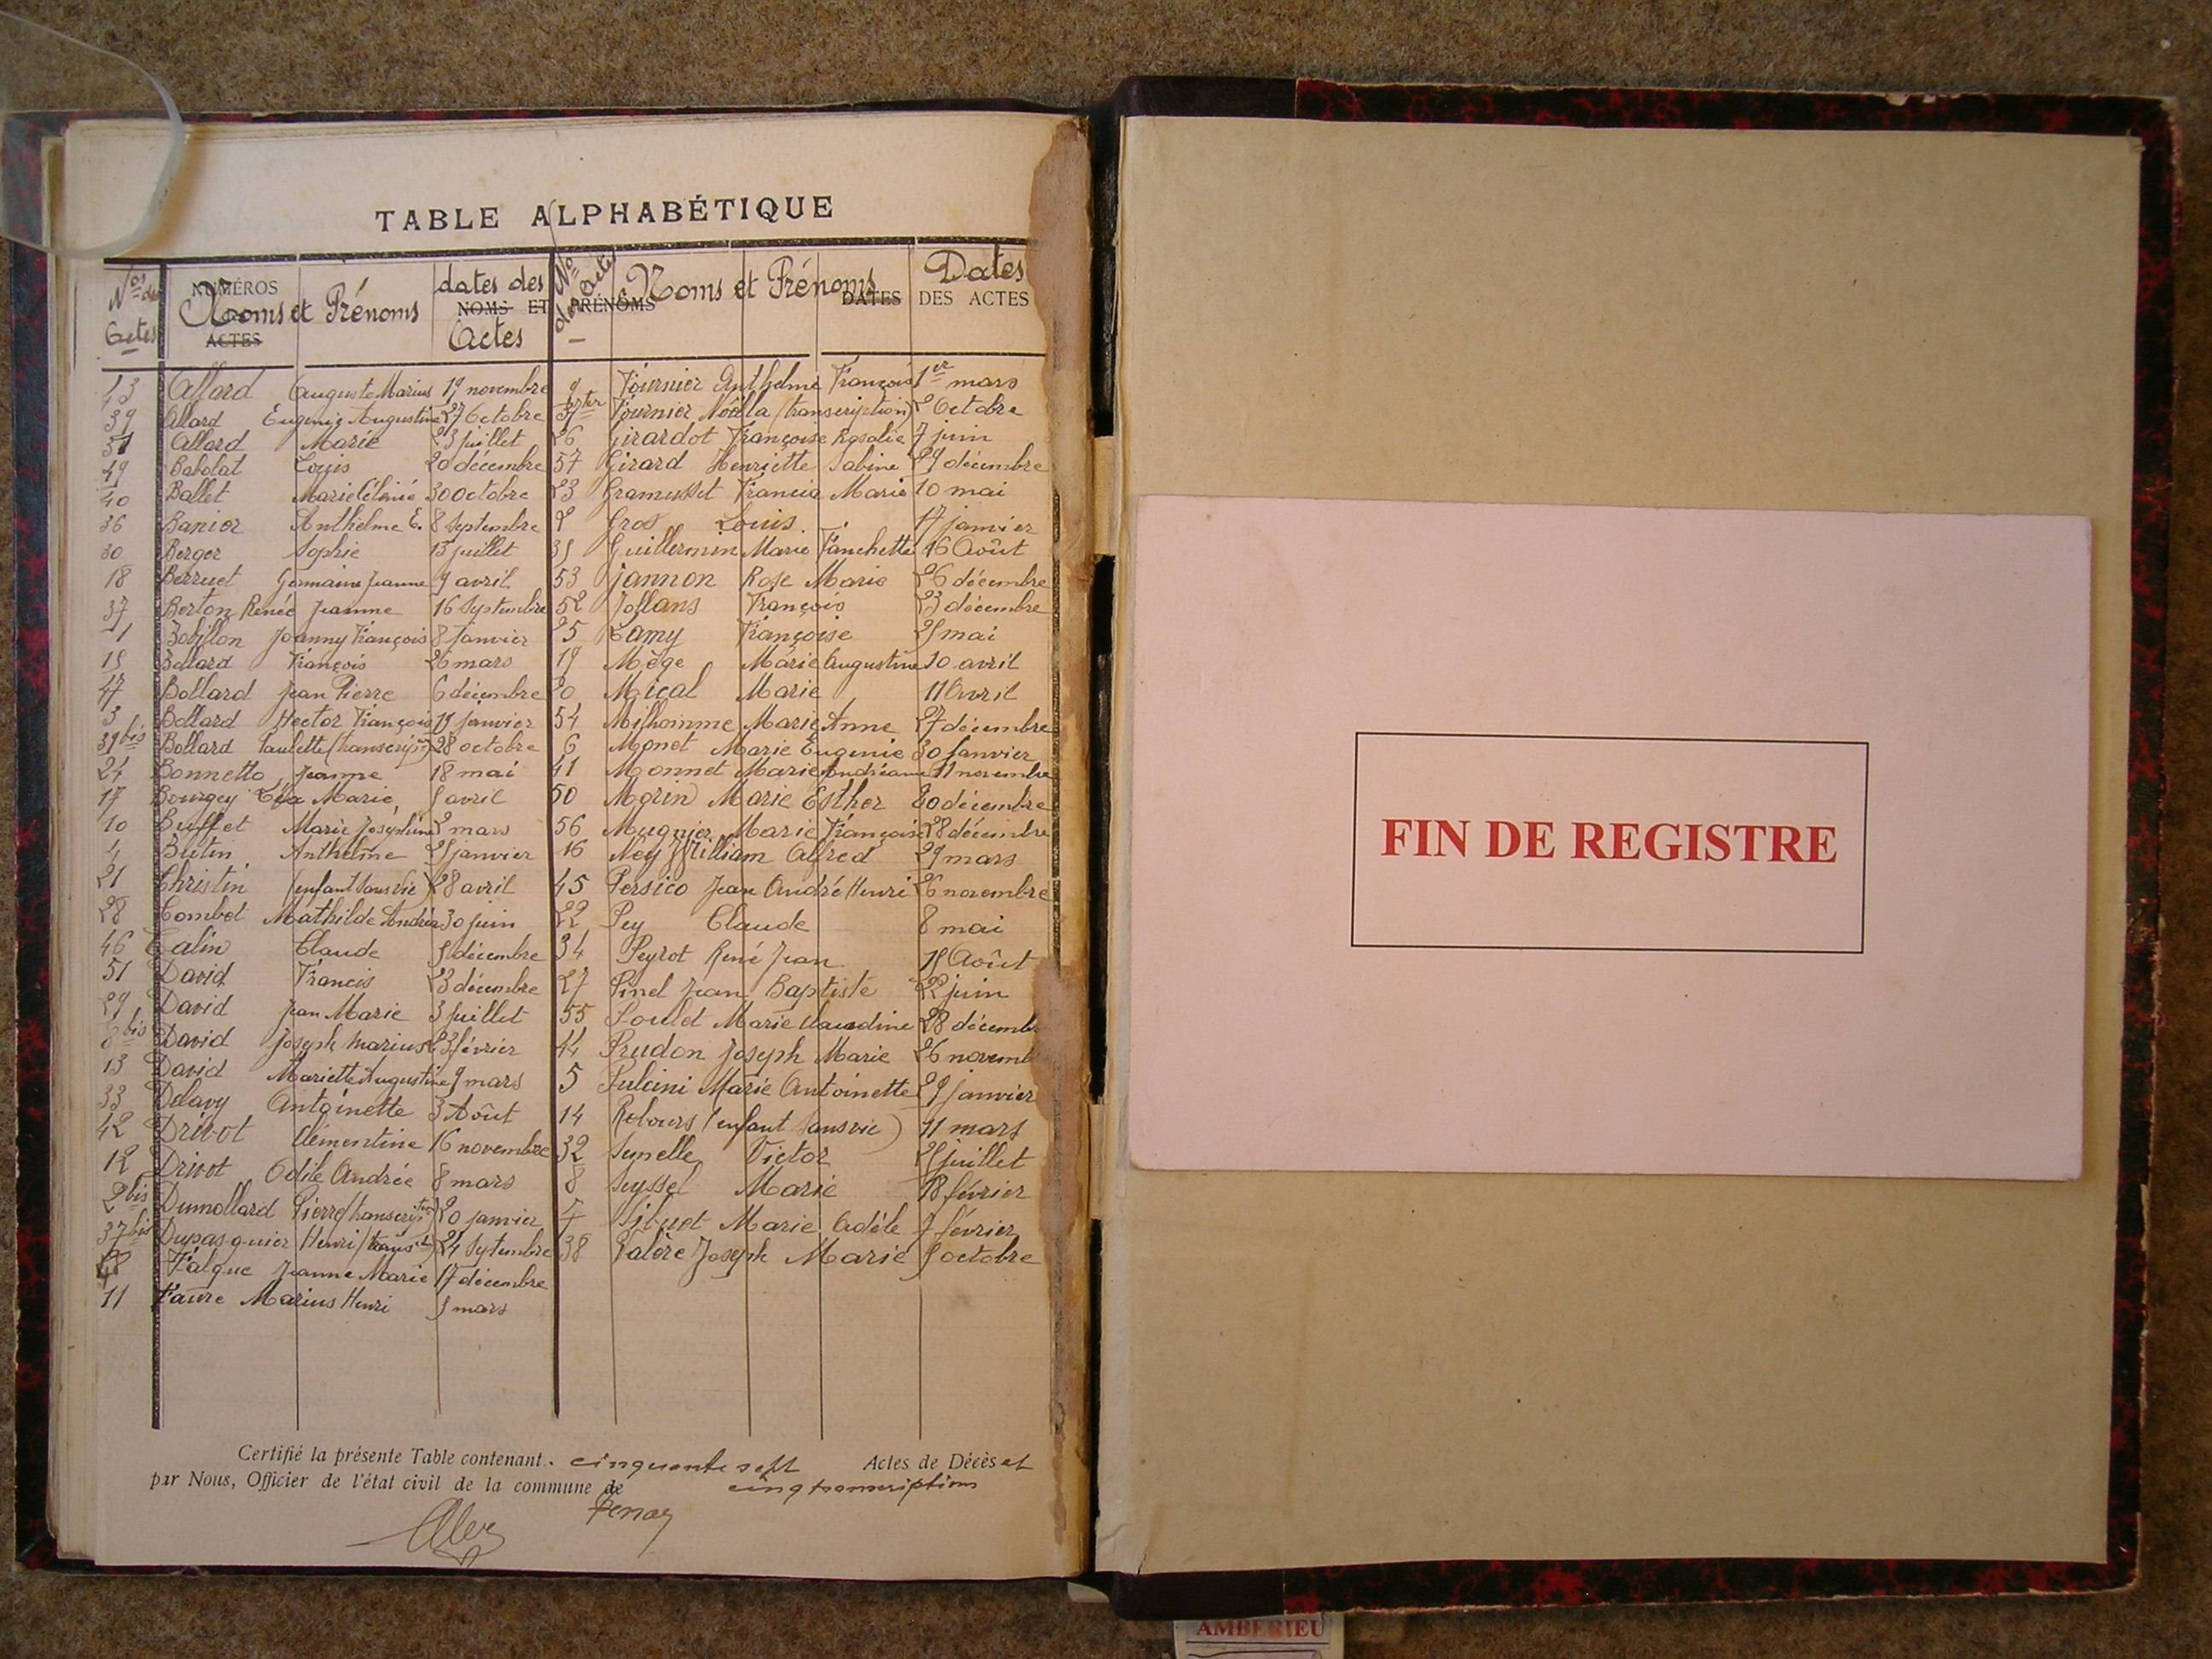 TABLE ALPHABÉTIQUE
Nos des Actes
NUMÉROS
Noms et Prénoms
ACTES
dates des
NOMS ET PRÉNOMS
Actes
Nos des Actes
Noms et Prénoms
DATES
Dates
DES ACTES
43 Allard Auguste Marius 19 novembre
39 Allard Eugenie Augustine 27 Octobre
31 Allard Marie 23 juillet
49 Babolat Louis 20 décembre
40 Ballet Marie 30 Octobre
36 Banier Anthelme E. 8 Septembre
30 Berger Sophie 13 juillet
18 Berruet Germaine Jeanne 9 avril
37 Berton Renée Jeanne 16 Septembre
1 Joanny François 8 Janvier
15 Bollard François 26 mars
47 Bollard Jean Pierre 6 décembre
3 Bollard Hector François 19 janvier
39 bis Bollard Paulette (transcripon) 28 octobre
24 Bonnetto Jeanne 18 mai
17 Bourgey Léa Marie 5 avril
10 Buffet Marie Joséphine 2 mars
4 Butin Anthelme 25 janvier
21 Christin (enfant sans vie) 28 avril
28 Combet Mathilde Andréa 30 juin
46 Calin Claude 5 décembre
51 David Francis 23 décembre
29 David Jean Marie 3 juillet
8 bis David Joseph Marius 23 février
13 David Mariette Augustine 9 mars
33 Delavy Antoinette 3 Août
42 Drivot Clémentine 16 novembre
12 Drivot Odile Andrée 8 mars
2 bis Dumollard Pierre (transcripton) 20 janvier
37 bis Dupasquier Henri 24 Septembre
48 Falque Jeanne Marie 17 décembre
11 Faure Marius Henri 5 mars
9 Fournier Anthelme François 1er mars
37 ter Fournier Noëlla (transcription) 2 Octobre
26 Girardot Françoise Rosalie 7 juin
57 Girard Henriette Sabine 29 décembre
23 Gramusset Francis Marie 10 mai
2 Gros Louis 17 janvier
35 Guillermin Marie Fanchette 16 Août
53 Jannon Rose Marie 26 décembre
52 Jollans François 23 décembre
25 Lamy Françoise 25 mai
19 Mège Marie Augustine 10 avril
20 Mical Marie 11 Avril
54 Milhomme Marie Anne 27 décembre
6 Monet Marie Eugenie 30 Janvier
41 Monnet Marie Andréanne 11 novembre
50 Morin Marie Esther 20 décembre
56 Mugnier Marie Françoise 28 décembre
16 Ney William Alfred 29 mars
45 Persico Jean André Henri 26 novembre
22 Pey Claude 8 mai
34 Peyrot René Jean 15 Août
27 Pinel Jean Baptiste 22 juin
55 Poulet Marie Claudine 28 décemb
44 Prudon Joseph Marie 26 novemb
5 Pulcini Marie Antoinette 29 janvier
14 Rebours (enfant sans vie) 11 mars
32 Victor 25 juillet
8 Seyssel Marie 18 février
7 Sibuet Marie Adèle 7 février
38 Valère Joseph Marie 5 octobre
Certifié la présente Table contenant cinquante sept Actes de Décès et
par Nous, Officier de l'état civil de la commune de cinq transcriptions
Tenay
FIN DE REGISTRE
AMBERIEU